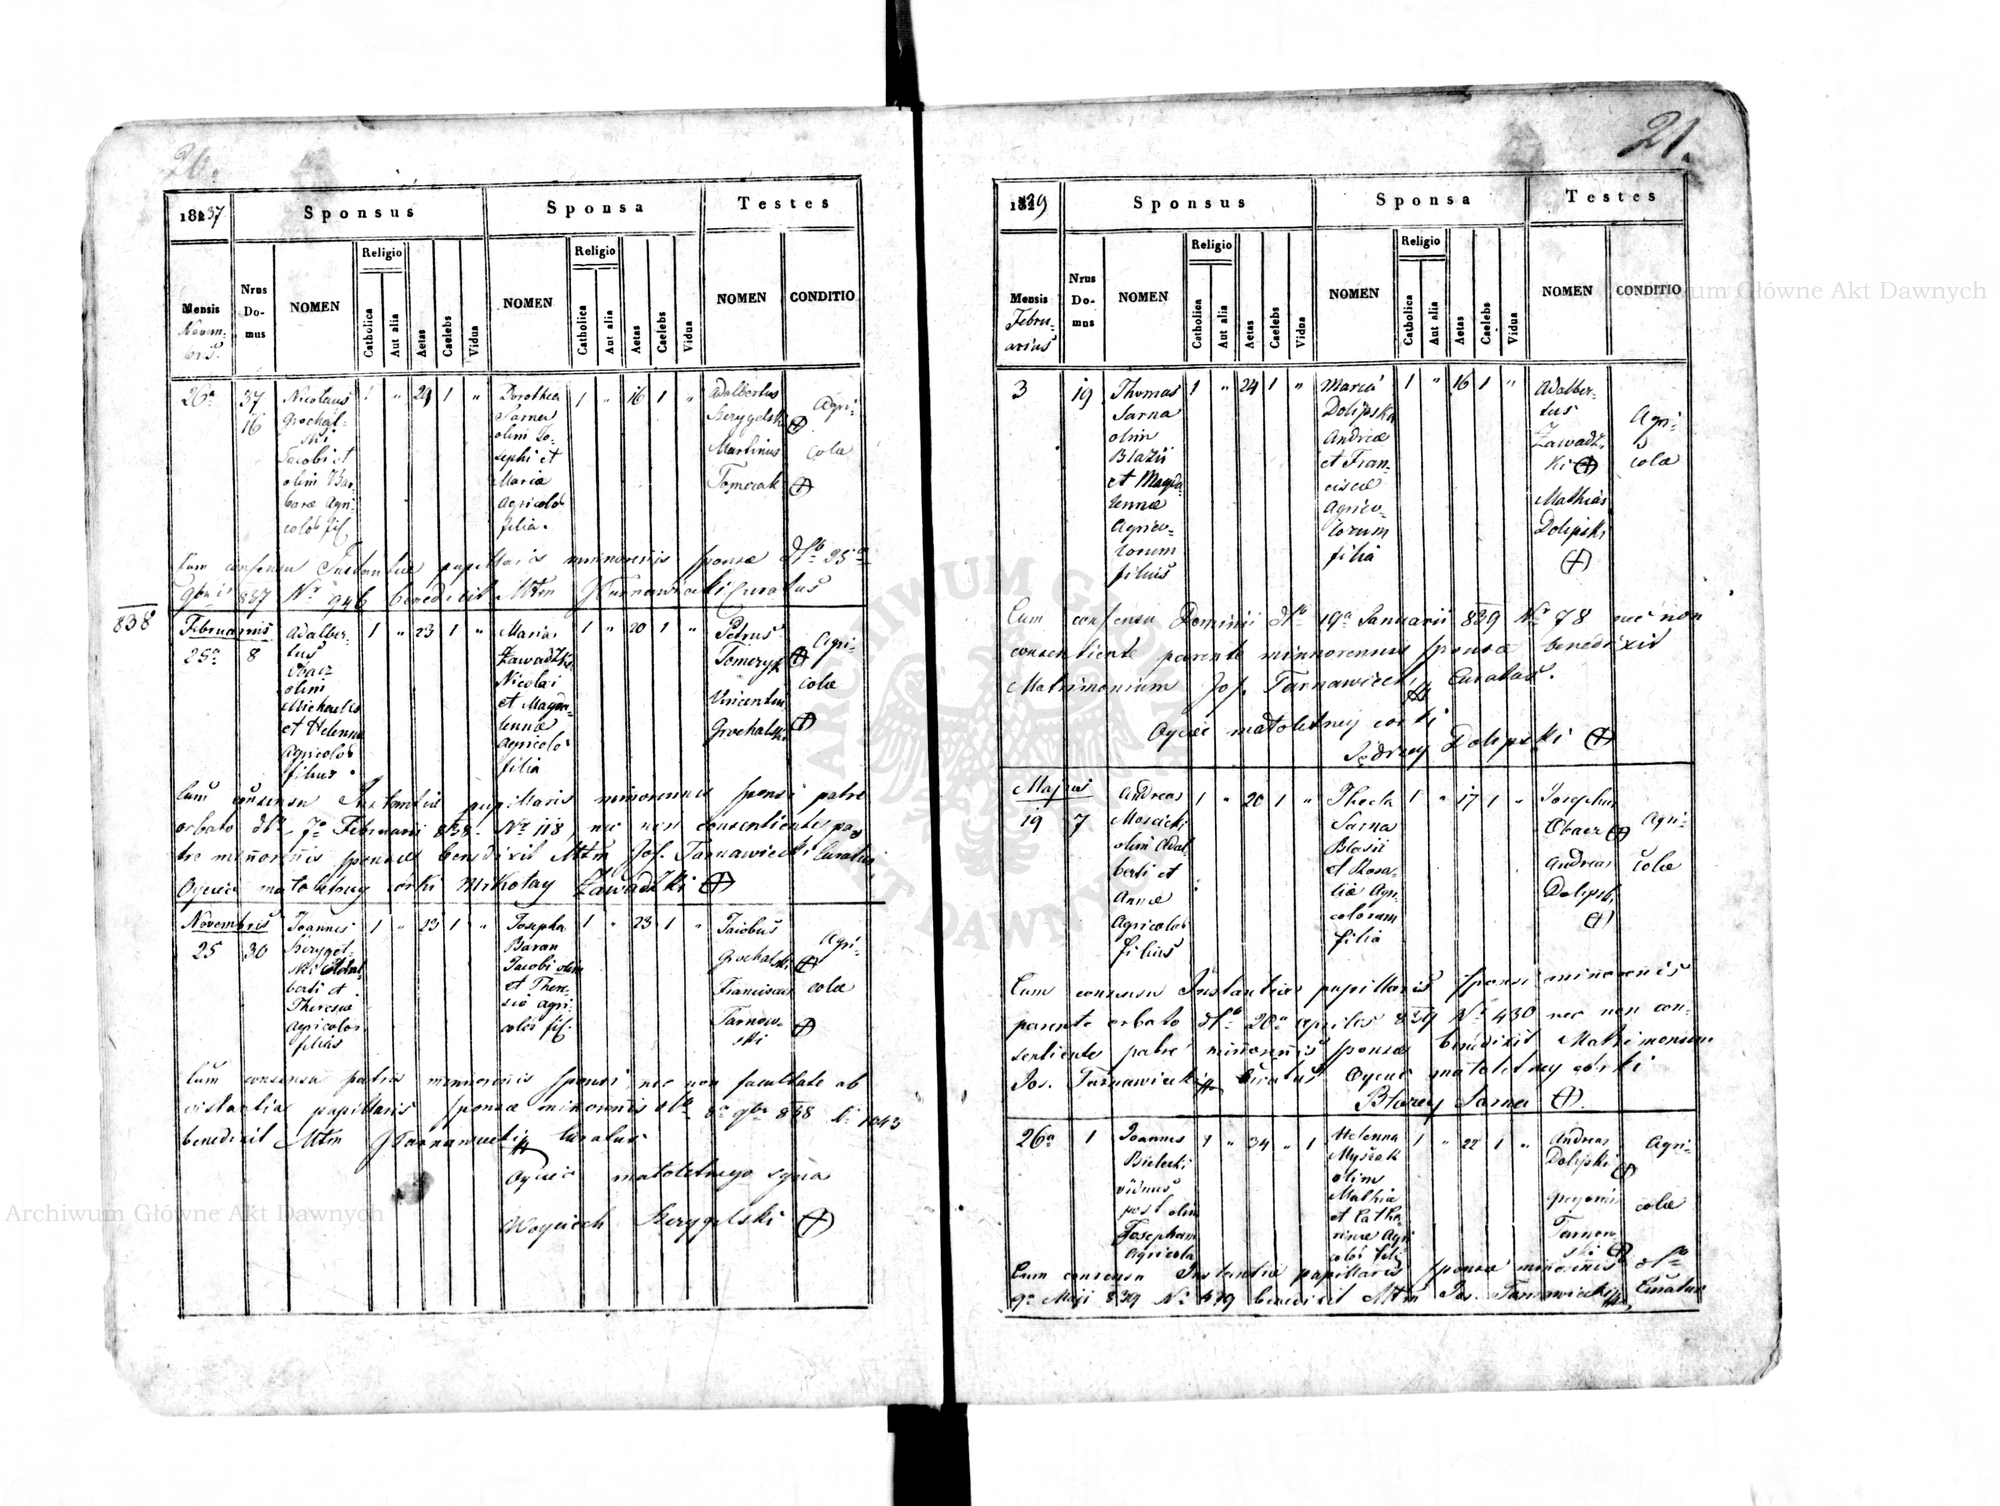 20.
1837
Sponsus
Sponsa
Testes
Mensis
Novem-
bris.
Nrus
Do-
mus
NOMEN
Religio
Catholica
Aut alia
Aetas
Caelebs
Vidua
NOMEN
Religio
Catholica
Aut alia
Aetas
Caelebs
Vidua
NOMEN
CONDITIO
26a
37
16
Nicolaus
Grochal-
ski
Jacobi et
olim Bar-
barae Agri-
colos fil.
1 " 24 1 "
Dorothea
Sarna
olim Jo-
sephi et
Maria
Agricolos
filia.
1 " 16 1 "
Adalbertus
Szerygelski
Martinus
Tomczak
Agri-
colae
Cum consensu Instantiae pupillaris minorennis sponsae 25a
837 Nr 946 benedixit Mtm J Tarnawiecki Curatus
838
Februarius
25a
8
Adalber-
tus
Obacz
olim
Michaelis
et Helenna
Agricolos
filius.
1 " 23 1 "
Maria
Zawadzka
Nicolai
et Magda-
lennae
Agricolos
filia
1 " 20 1 "
Petrus
Tomczyk
Vincentius
Grochalski
Agri-
colae
Cum consensu Instantiae pupillaris minorennis sponsi patre
orbato 7a Februarii 838 Nr 118, nec non consentiente pa-
tre minorennis sponsae benedixit Mtm Jos. Tarnawiecki Curatus
Oyciec małoletniey córki Mikołay Zawadzki
Novembris
25
30
Joannes
Szerygel-
ski Adal-
berti et
Theresiae
Agricolos
filius
1 " 23 1 "
Josepha
Baran
Jacobi olim
et There-
sia agri-
colos fil.
1 " 23 1 "
Jacobus
Grochalski
Franciscus
Tarnow-
ski
Agri-
colae
Cum consensu patris minorennis sponsi nec non facultate ab
instantia pupillaris sponsae minorennis 838 1043
benedixit Mtm J Tarnawiecki Curatus
Oyciec małoletniego syna
Woyciech Szerygelski
21.
1839
Sponsus
Sponsa
Testes
Mensis
Febru-
arius
Nrus
Do-
mus
NOMEN
Religio
Catholica
Aut alia
Aetas
Caelebs
Vidua
NOMEN
Religio
Catholica
Aut alia
Aetas
Caelebs
Vidua
NOMEN
CONDITIO
3
19
Thomas
Sarna
olim
Blazii
et Magda-
lennae
Agrico-
lorum
filius
1 " 24 1 "
Maria
Dolipska
Andreae
et Fran-
ciscae
Agrico-
lorum
filia
1 " 16 1 "
Adalber-
tus
Zawadz-
ki
Mathias
Dolipski
Agri-
colae
Cum consensu Dominii 19a Januarii 839 Nr 78 nec non
consentiente parente minnorennis sponsae benedixit
Matrimonium Jos. Tarnawiecki Curatus.
Oyciec małoletniey corki
Jędrzey Dolipski
Majus
19
7
Andreas
Moscicki
olim Adal-
berti et
Annae
Agricolos
filius
1 " 20 1 "
Thecla
Sarna
Blasii
et Rosa-
liae Agri-
colorum
filia
1 " 17 1 "
Josephus
Obacz
Andreas
Dolipski
Agri-
colae
Cum consensu Instantiae pupillaris sponsi minorennis
parente orbato 20a Aprilis 839 Nr 430 nec non con-
sentiente patre minorennis sponsae benedixit Matrimonium
Jos. Tarnawiecki Curatus Oyciec małoletniey córki
Błazey Sarna
26a
1
Joannes
Bielecki
viduus
post olim
Josepham
Agricola
1 " 34 " 1
Helenna
Mysiak
olim
Mathiae
et Catha-
rinae Agri-
colos filia
1 " 22 1 "
Andreas
Dolipski
Gregorius
Tarnow-
ski
Agri-
colae
Cum consensu Instantiae pupillaris sponsae minorennis
9a Maji 839 Nr 479 benedixit Mtm Jos. Tarnawiecki Curatus
ARCHIWUM GŁÓWNE AKT DAWNYCH
Archiwum Główne Akt Dawnych
Archiwum Główne Akt Dawnych